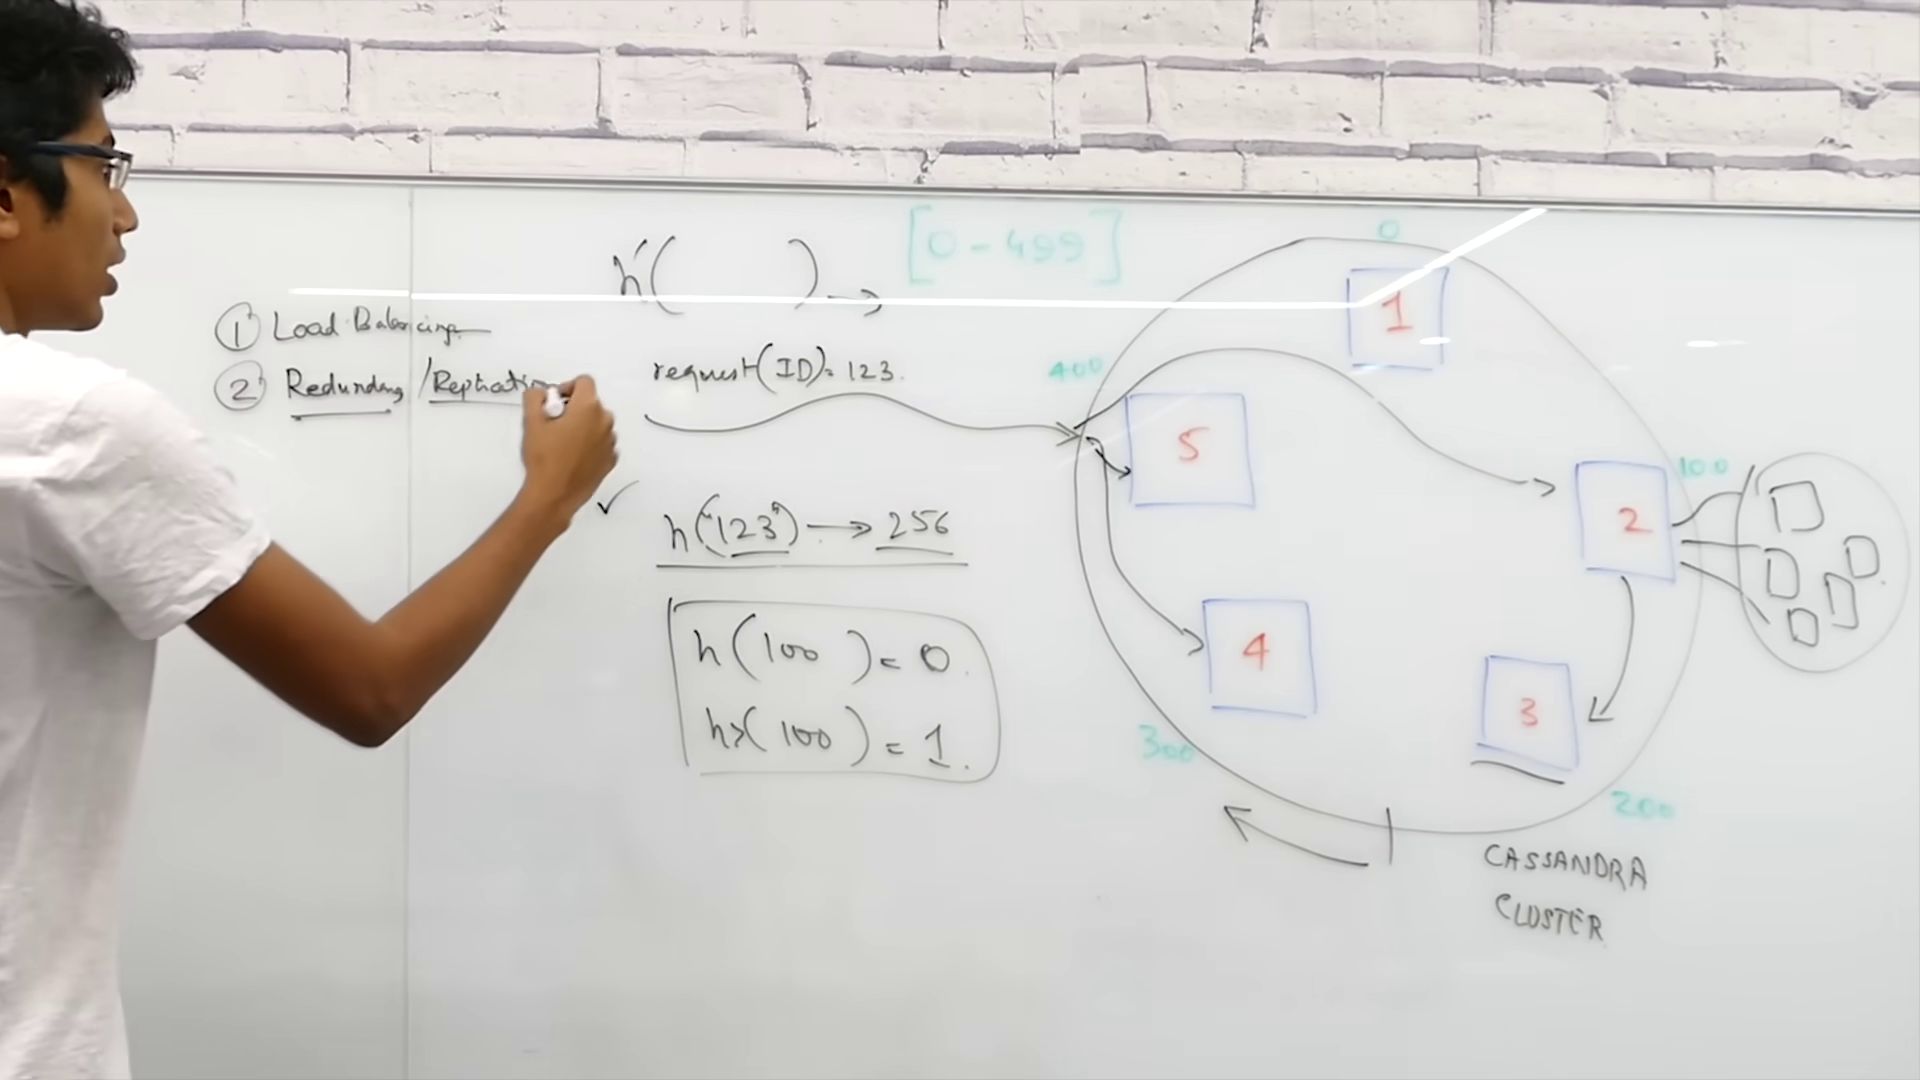 ① Load Balancing
② Redundancy / Replication
h'( ) →
[0 - 499]
request(ID) = 123.
✓
h("123") → 256
h(100) = 0.
h>(100) = 1.
0
100
200
300
400
1
2
3
4
5
CASSANDRA
CLUSTER